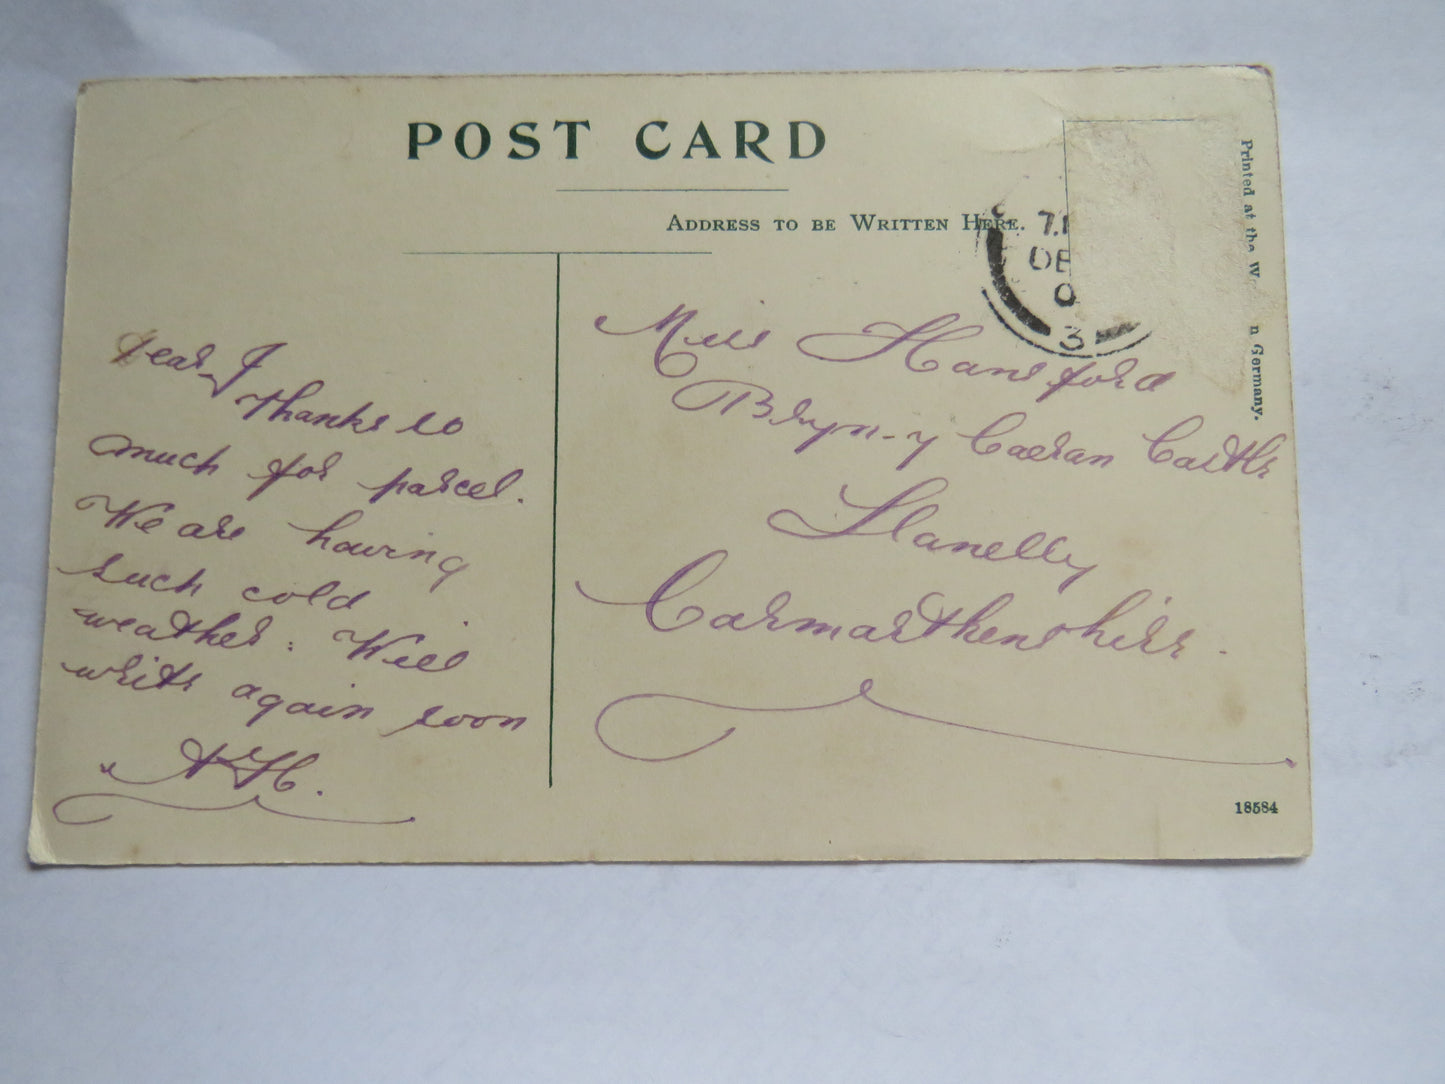 POST CARD
ADDRESS TO BE WRITTEN HERE.
Printed at the n Germany.
7.
DE
3
Dear J
Thanks so
much for parcel.
We are having
such cold
weather. Will
write again soon
A H.
Miss Hansford
Bryn-y Caeran Castle
Llanelly
Carmarthenshire.
18584